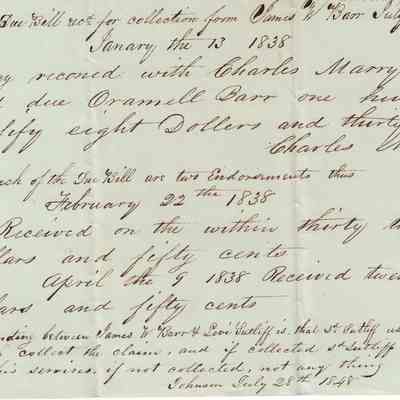 Due Bill rect for collection form James W Barr July
Janary the 13 1838
reconed with Charles Marry
due Oramell Barr one hun
fifty eight Dollers and thirty
Charles
of the Due Bill are two Endorsments thus
February 22 the 1838
Received on the within thirty
lars and fifty cents
April the 9 1838 Received twe
lars and fifty cents
nding between James W Barr & Levi Sutliff is, that sd Sutliff
collect the claim, and if collected sd Sutliff
his services, if not collected, not any thing
Johnson July 28th 1848